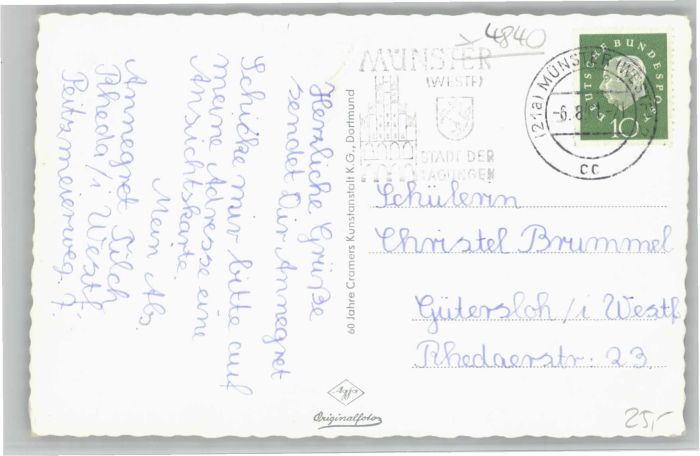 4840
MÜNSTER
(WESTF)
STADT DER
TAGUNGEN
(21a) MÜNSTER (WESTF)
-6.8.
cc
DEUTSCHE BUNDESPOST
10
Herzliche Grüße
sendet Dir Annegret
Schicke mir bitte auf
meine Adresse eine
Ansichtskarte.
Mein Abs.
Annegret Pilch
Rheda/i Westf.
Peitzmeierweg. 7.
60 Jahre Cramers Kunstanstalt K.G., Dortmund
Schülerin
Christel Brummel
Gütersloh/i Westf
Rhedaerstr. 23.
Agfa
Originalfoto
25,-